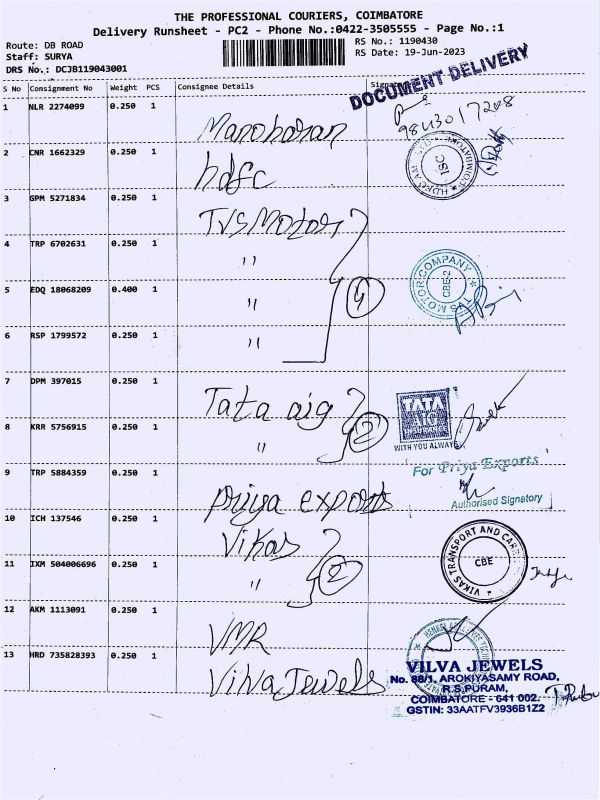 THE PROFESSIONAL COURIERS, COIMBATORE
Delivery Runsheet - PC2 - Phone No.:0422-3505555 - Page No.:1
Route: DB ROAD
RS No.: 1190430
Staff: SURYA
RS Date: 19-Jun-2023
DRS No.: DCJB119043001
DOCUMENT DELIVERY
S No Consignment No Weight PCS Consignee Details
1 NLR 2274099 0.250 1 Manoharan
2 CNR 1662329 0.250 1 hdfc
3 GPM 5271834 0.250 1 TVS Motor
4 TRP 6702631 0.250 1 "
TVS MOTOR COMPANY
CBE-2
5 EDQ 18068209 0.400 1 "
4
6 RSP 1799572 0.250 1 "
7 DPM 397015 0.250 1 Tata aig
TATA
AIG
INSURANCE
WITH YOU ALWAYS
8 KRR 5756915 0.250 1 " 2
For Priya Exports
9 TRP 5884359 0.250 1 Priya exports
Authorised Signatory
10 ICH 137546 0.250 1 Vikas
VIKAS TRANSPORT AND
CBE
11 IXM 504006696 0.250 1 " 2
12 AKM 1113091 0.250 1 VMR
13 HRD 735828393 0.250 1 Vilva Jewels
VILVA JEWELS
No. 88/1, AROKIYASAMY ROAD,
R.S.PURAM,
COIMBATORE - 641 002.
GSTIN: 33AATFV3936B1Z2